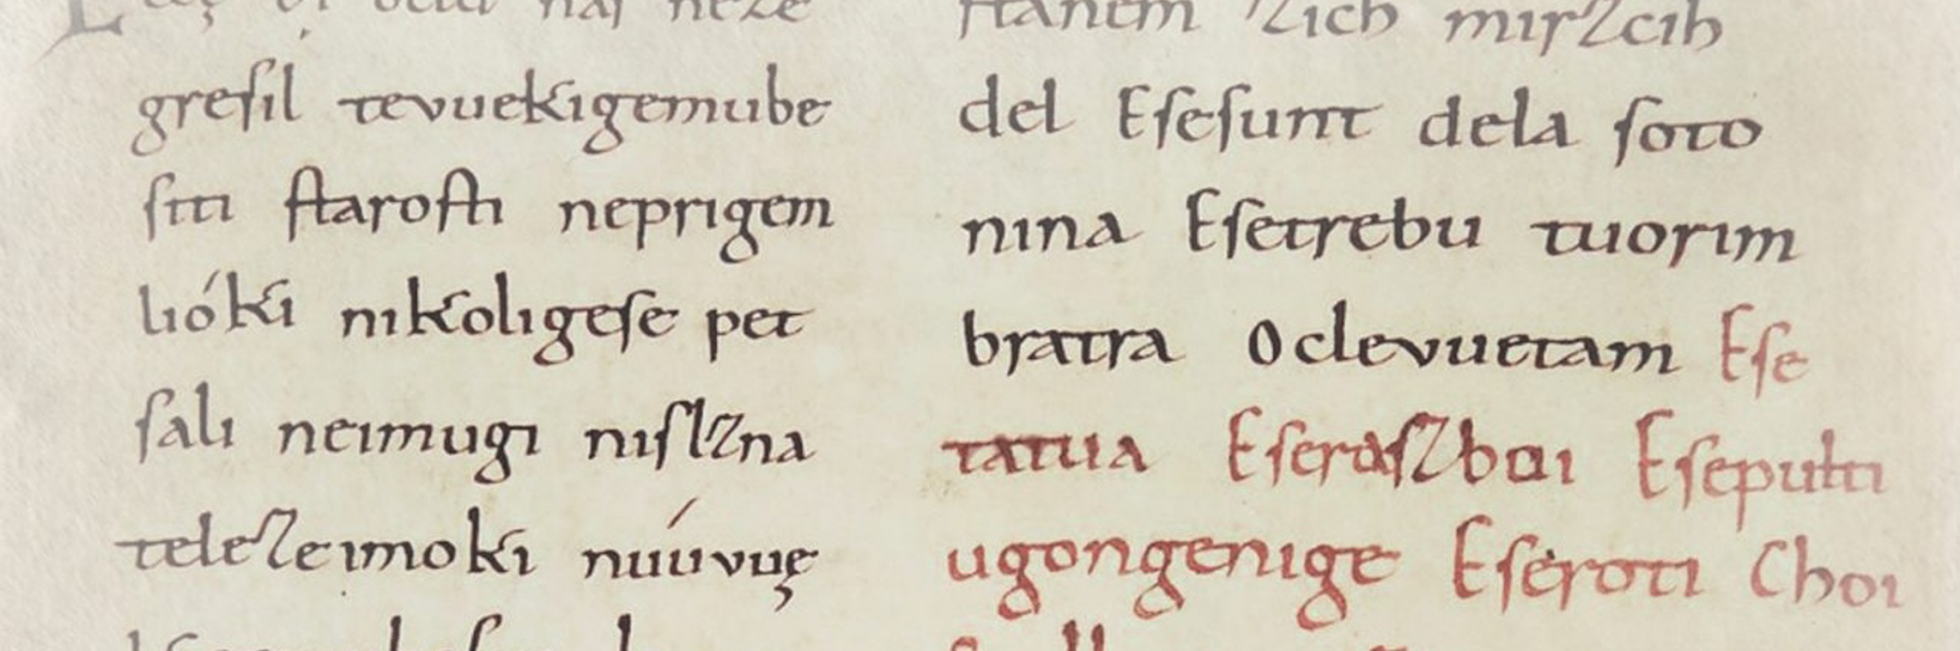 naſ neze
greſil tevuekigemube
ſiti ſtaroſti neprigem
lióki nikoligeſe pet
ſali neimugi niſlzna
telezeimoki nuúvuę
ſtanem zich mirzcih
del Eſeſunt dela ſoto
nina Eſetrebu tuorim
bratra Oclevuetam Eſe
tatua Eſeraſzboi Eſepulti
ugongenige Eſeroti Choi